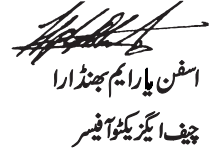 اسفن یار ایم بھنڈارا
چیف ایگزیکٹو آفیسر